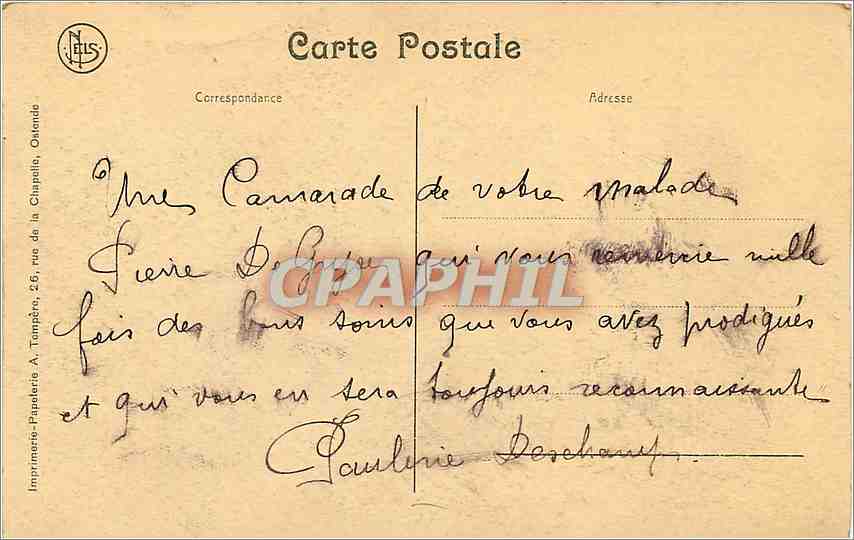 NELS
Carte Postale
Correspondance
Adresse
Imprimerie-Papeterie A. Tempère, 26, rue de la Chapelle, Ostende
Une Camarade de votre malade
Pierre DeGryse qui vous remercie mille
fois des bons soins que vous avez prodigués
et qui vous en sera toujours reconnaissante
Paulerie Deschamps.
CPAPHIL